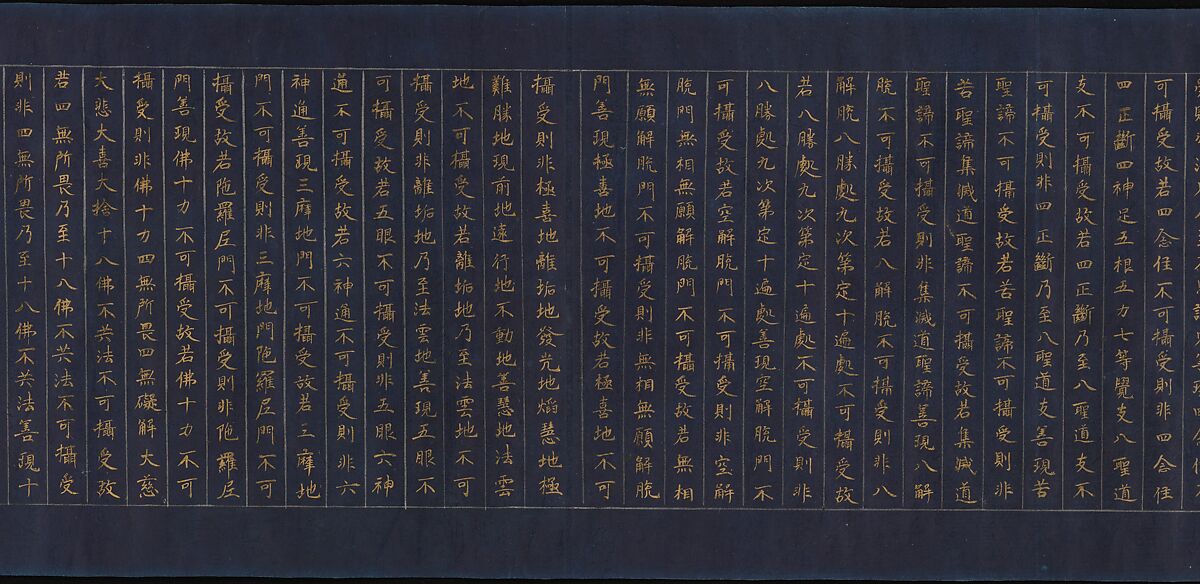 可攝受故若四念住不可攝受則非四念住
四正斷四神足五根五力七等覺支八聖道
支不可攝受故若四正斷乃至八聖道支不
可攝受則非四正斷乃至八聖道支善現苦
聖諦不可攝受故若苦聖諦不可攝受則非
苦聖諦集滅道聖諦不可攝受故若集滅道
聖諦不可攝受則非集滅道聖諦善現八解
脫不可攝受故若八解脫不可攝受則非八
解脫八勝處九次第定十遍處不可攝受故
若八勝處九次第定十遍處不可攝受則非
八勝處九次第定十遍處善現空解脫門不
可攝受故若空解脫門不可攝受則非空解
脫門無相無願解脫門不可攝受故若無相
無願解脫門不可攝受則非無相無願解脫
門善現極喜地不可攝受故若極喜地不可
攝受則非極喜地離垢地發光地焰慧地極
難勝地現前地遠行地不動地善慧地法雲
地不可攝受故若離垢地乃至法雲地不可
攝受則非離垢地乃至法雲地善現五眼不
可攝受故若五眼不可攝受則非五眼六神
通不可攝受故若六神通不可攝受則非六
神通善現三摩地門不可攝受故若三摩地
門不可攝受則非三摩地門陀羅尼門不可
攝受故若陀羅尼門不可攝受則非陀羅尼
門善現佛十力不可攝受故若佛十力不可
攝受則非佛十力四無所畏四無礙解大慈
大悲大喜大捨十八佛不共法不可攝受故
若四無所畏乃至十八佛不共法不可攝受
則非四無所畏乃至十八佛不共法善現十